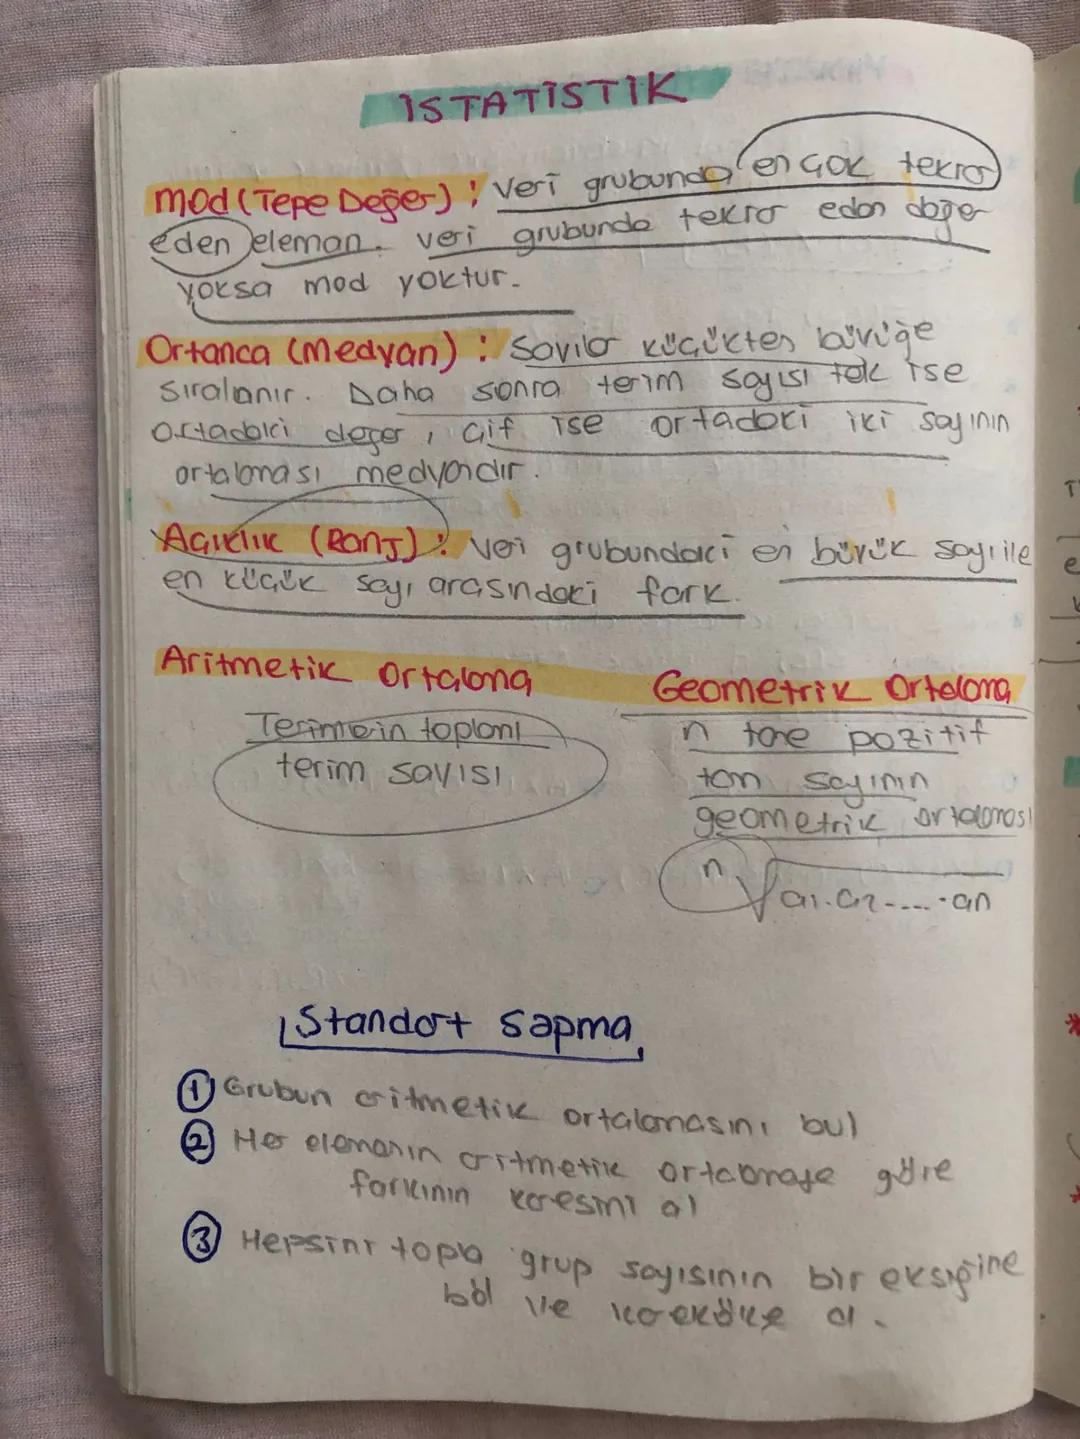 İSTATİSTİK
Mod (Tepe Değer) : Veri grubunda en çok tekrar
eden eleman. Veri grubunda tekrar eden değer
yoksa mod yoktur.
Ortanca (Medyan) : Sayılar küçükten büyüğe
sıralanır. Daha sonra terim sayısı tek ise
ortadaki değer, çift ise ortadaki iki sayının
ortalaması medyandır.
Açıklık (Ranj) : Veri grubundaki en büyük sayı ile
en küçük sayı arasındaki fark.
Aritmetik Ortalama
Terimlerin toplamı
terim sayısı
Geometrik Ortalama
n tane pozitif
tam sayının
geometrik ortalaması
n√a1.a2-....·an
Standart Sapma
1 Grubun aritmetik ortalamasını bul
2 Her elemanın aritmetik ortalamaya göre
farkının karesini al
3 Hepsini topla grup sayısının bir eksiğine
böl ve karekök al.